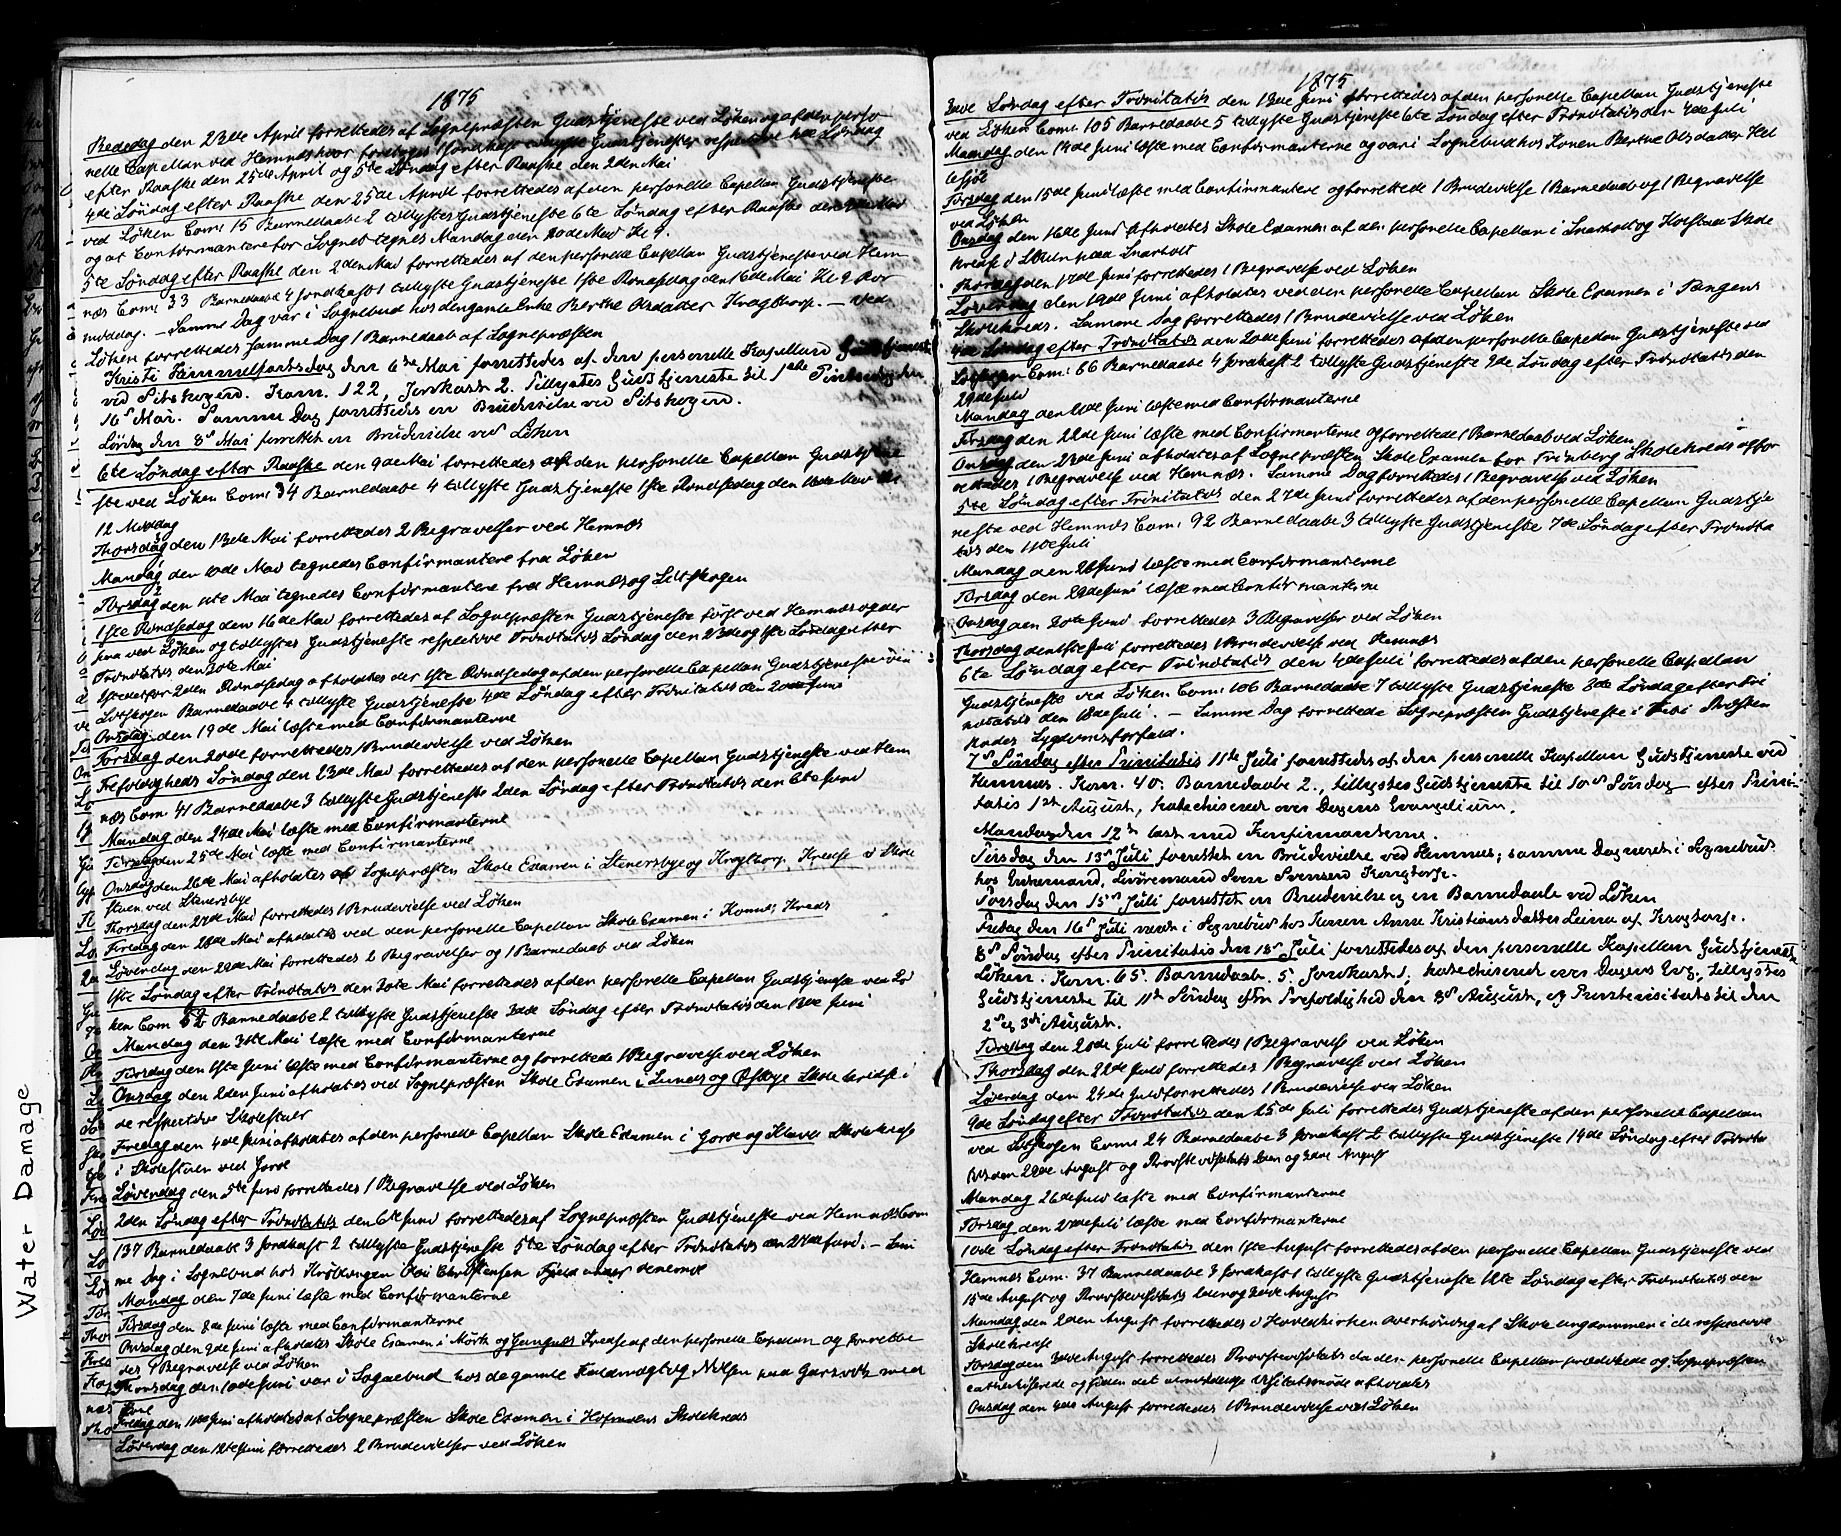 1875
Bededag den 23de April forrettedes af Sognepræsten Gudstjeneste ved Løken og af den perso
nelle Capellan ved Hemnæs hvor 1 Jordkast tillyste Gudstjenester respective 4de Løndag
efter Paaske den 25de April og 5te Løndag efter Paaske den 2den Mai
4de Løndag efter Paaske den 25de April forrettedes af den personelle Capellan Gudstjeneste
ved Løken Com: 15 Barnedaabe 2 tillystes Gudstjeneste 6te Løndag efter Paaske den 9de Mai
og at Confirmantere for Sognet tegnes Mandag den 10de Mai Kl 9.
5te Løndag efter Paaske den 2den Mai forrettedes af den personelle Capellan Gudstjeneste ved Hem
næs Com: 33 Barnedaabe 4 Jordkast 1 tillyste Gudstjeneste 1ste Pindsedag den 16de Mai Kl 9 For
middag. – Samme Dag var i Sognebud hos den gamle Enke Berthe Olsdatter Kragtorp. – Ved
Løken forrettedes samme Dag 1 Barnedaab af Sognepræsten
Kristi Himmelfartsdag den 6te Mai forrettedes af den personelle Kapellan Gudstjeneste
ved Sitskogen. Kom. 122, Jordkast 2. Tillystes Gudstjeneste til 1ste Pintsedag den
16d Mai. Samme Dag forrettedes en Brudevielse ved Sitskogen.
Lørdag den 8d Mai forrettet en Brudevielse ved Løken
6te Løndag efter Paaske den 9de Mai forrettedes af den personelle Capellan Gudstjene
ste ved Løken Com: 34 Barnedaabe 4 tillyste Gudstjeneste 1ste Pindsedag den 16de Mai Kl
12 Middag
Thorsdag den 13de Mai forrettedes 2 Begravelser ved Hemnæs
Mandag den 10de Mai tegnedes Confirmantere fra Løken
Tirsdag den 11te Mai tegnedes Confirmantere fra Hemnæs og Sitskogen
1ste Pindsedag den 16de Mai forrettedes af Sognepræsten Gudstjeneste først ved Hemnæs og der
paa ved Løken og tillystes Gudstjeneste respective Trinitatis Løndag den 23de og 1ste Løndag efter
Trinitatis den 30te Mai
Istedetfor 2den Pindsedag afholdtes der 1ste Pindsedag af den personelle Capellan Gudstjeneste ved
Sitskogen Barnedaabe 4 tillyste Gudstjeneste 4de Løndag efter Trinitatis den 20de Juni
Onsdag den 19de Mai læste med Confirmanterne
Torsdag den 20de forrettedes 1 Brudevielse ved Løken
Trefoldigheds Løndag den 23de Mai forrettedes af den personelle Capellan Gudstjeneste ved Hem
næs Com: 41 Barnedaabe 3 tillyste Gudstjeneste 2den Løndag efter Trinitatis den 6te Juni
Mandag den 24de Mai læste med Confirmanterne
Tirsdag den 25de Mai læste med Confirmanterne
Onsdag den 26de Mai afholdtes af Sognepræsten Skole Examen i Stenersbye og Kragtorp Kredse i Skole
stuen ved Stenersbye
Thorsdag den 27de Mai forrettedes 1 Brudevielse ved Løken
Fredag den 28de Mai afholdtes ved den personelle Capellan Skole Examen i Komnæs Kreds
Løverdag den 29de Mai forrettedes 2 Begravelser og 1 Barnedaab ved Løken
1ste Løndag efter Trinitatis den 30te Mai forrettedes af den personelle Capellan Gudstjeneste ved Lø
ken Com 52 Barnedaabe 2 tillyste Gudstjeneste 3die Løndag efter Trinitatis den 13de Juni
Mandag den 31te Mai læste med Confirmanterne
Tirsdag den 1ste Juni læste med Confirmanterne og forrettede 1 Begravelse ved Løken
Onsdag den 2den Juni afholdtes ved Sognepræsten Skole Examen i Lunds og Østbye Skole kredse i
de respective Skolestuer
Fredag den 4de Juni afholdtes af den personelle Capellan Skole Examen i Gorve og Klava Skolekreds
i Skolestuen ved Gorve
Løverdag den 5te Juni forrettedes 1 Begravelse ved Løken
2den Løndag efter Trinitatis den 6te Juni forrettedes af Sognepræsten Gudstjeneste ved Hemnæs Com
137 Barnedaabe 3 Jordkast 2 tillyste Gudstjeneste 5te Løndag efter Trinitatis den 27de Juni. – Sam
me Dag i Sognebud hos Olai Christensen
Mandag den 7de Juni læste med Confirmanterne
Tirsdag den 8de Juni læste med Confirmanterne
Onsdag den 9de Juni afholdtes Skole Examen i Mørk og Gangnæs Kredse af den personelle Capellan og forrette
des 1 Begravelse ved Løken
Thorsdag den 10de Juni var i Sognebud hos de gamle Nilsen paa med
Kone
Fredag den 11te Juni afholdtes af Sognepræsten Skole Examen i Hofsnæs Skolekreds
Løverdag den 12te Juni forrettedes 2 Brudevielser ved Løken
1875
3die Løndag efter Trinitatis den 13de Juni forrettedes af den personelle Capellan Gudstjeneste
ved Løken Com: 105 Barnedaabe 5 tillyste Gudstjeneste 6te Løndag efter Trinitatis den 4de Juli
Mandag den 14de Juni læste med Confirmanterne og var i Sognebud hos Konen Berthe Olsdatter Hel
lesjøe
Tirsdag den 15de Juni læste med Confirmantere og forrettede 1 Brudevielse 1 Barnedaab og 1 Begravelse
ved Løken
Onsdag den 16de Juni afholdtes Skole Examen af den personelle Capellan i Snarholt og Kolstad Skole
Kredse i Skolen paa Snarholt
Thorsdag den 17de Juni forrettedes 1 Begravelse ved Løken
Løverdag den 19de Juni afholdtes ved den personelle Capellan Skole Examen i Tangens
Skolekreds. Samme Dag forrettedes 1 Brudevielse ved Løken
4de Løndag efter Trinitatis den 20de Juni forrettedes af den personelle Capellan Gudstjeneste ved
Sitskogen Com: 66 Barnedaabe 4 Jordkast 2 tillyste Gudstjeneste 9de Løndag efter Trinitatis den
25de Juli
Mandag den 21de Juni læste med Confirmanterne
Tirsdag den 22de Juni læste med Confirmanterne og forrettede 1 Barnedaab ved Løken
Onsdag den 23de Juni afholdtes af Sognepræsten Skole Examen for Trinberg Skolekreds og for
rettedes 1 Begravelse ved Hemnæs. Samme Dag forrettedes 1 Begravelse ved Løken
5te Løndag efter Trinitatis den 27de Juni forrettedes af den personelle Capellan Gudstje
neste ved Hemnæs Com: 92 Barnedaabe 3 tillyste Gudstjeneste 7de Løndag efter Trinita
tis den 11te Juli
Mandag den 28 Juni læste med Confirmanterne
Tirsdag den 29de Juni læste med Confirmanterne
Onsdag den 30te Juni forrettedes 3 Begravelser ved Løken
Thorsdag den 1ste Juli forrettedes 1 Brudevielse ved Hemnæs
6te Løndag efter Trinitatis den 4de Juli forrettedes af den personelle Capellan
Gudstjeneste ved Løken Com: 106 Barnedaabe 7 tillyste Gudstjeneste 8de Løndag efter Tri
nitatis den 18de Juli. – Samme Dag forrettede Sognepræsten Gudstjeneste i Præsten
Sygdomsforfald.
7d Søndag efter Trinitatis 11te Juli forrettedes af den personelle Kapellan Gudstjeneste ved
Hemnes. Kom. 40. Barnedaabe 2., tillystes Gudstjeneste til 10d Søndag efter Trini-
tatis 1ste August, katechiseret over Dagens Evangelium.
Mandag den 12te læst med Konfirmanterne.
Tirsdag den 13d Juli forrettet en Brudevielse ved Hemnes; samme Dag været i Sognebud
hos Enkemand, Livøremand Sven Svensen Kragtorp.
Torsdag den 15d Juli forrettet en Brudevielse og en Barnedaab ved Løken
Fredag den 16d Juli været i Sognebud hos Konen Anne Kristiansdatter Leira af Kragtorp.
8d Søndag efter Trinitatis den 18d Juli forrettedes af den personelle Kapellan Gudstjeneste
Løken. Kom. 65. Barnedaab. 5. Jordkast 1, katechiseret over Dagens Evg. tillystes
Gudstjeneste til 11te Søndag efter Trefoldighed den 8d August, og Provstevisitats til den
2d og 3de August.
Tirsdag den 20de Juli forrettedes 1 Begravelse ved Løken
Thorsdag den 22de Juli forrettedes 1 Begravelse ved Løken
Løverdag den 24de Juli forrettedes 1 Brudevielse ved Løken
9de Løndag efter Trinitatis den 25de Juli forrettedes Gudstjeneste af den personelle Capellan
ved Sitskogen Com: 24 Barnedaabe 3 Jordkast 2 tillyste Gudstjeneste 14de Løndag efter Trinita
tis den 29de August og Provstevisitats 2den og 3die August
Mandag 26de Juli læste med Confirmanterne
Tirsdag den 27de Juli læste med Confirmanterne
10de Løndag efter Trinitatis den 1ste August forrettedes af den personelle Capellan Gudstjeneste ved
Hemnæs Com: 37 Barnedaabe 3 Jordkast 1 tillyste Gudstjeneste 12te Løndag efter Trinitatis den
15de August og Provstevisitats 2den og 3die August
Mandag den 2den August forrettedes i Hovedkirken overhøring af Skole ungdommen i de respective
Skolekredse
Tirsdag den 3die August forrettedes Provstevisitats da den personelle Capellan prædikede og Sognepræsten
catherkiserede og siden det almindelige Visitatsmøde afholdtes
Onsdag den 4de August forrettedes 1 Brudevielse ved Løken
Water Damage